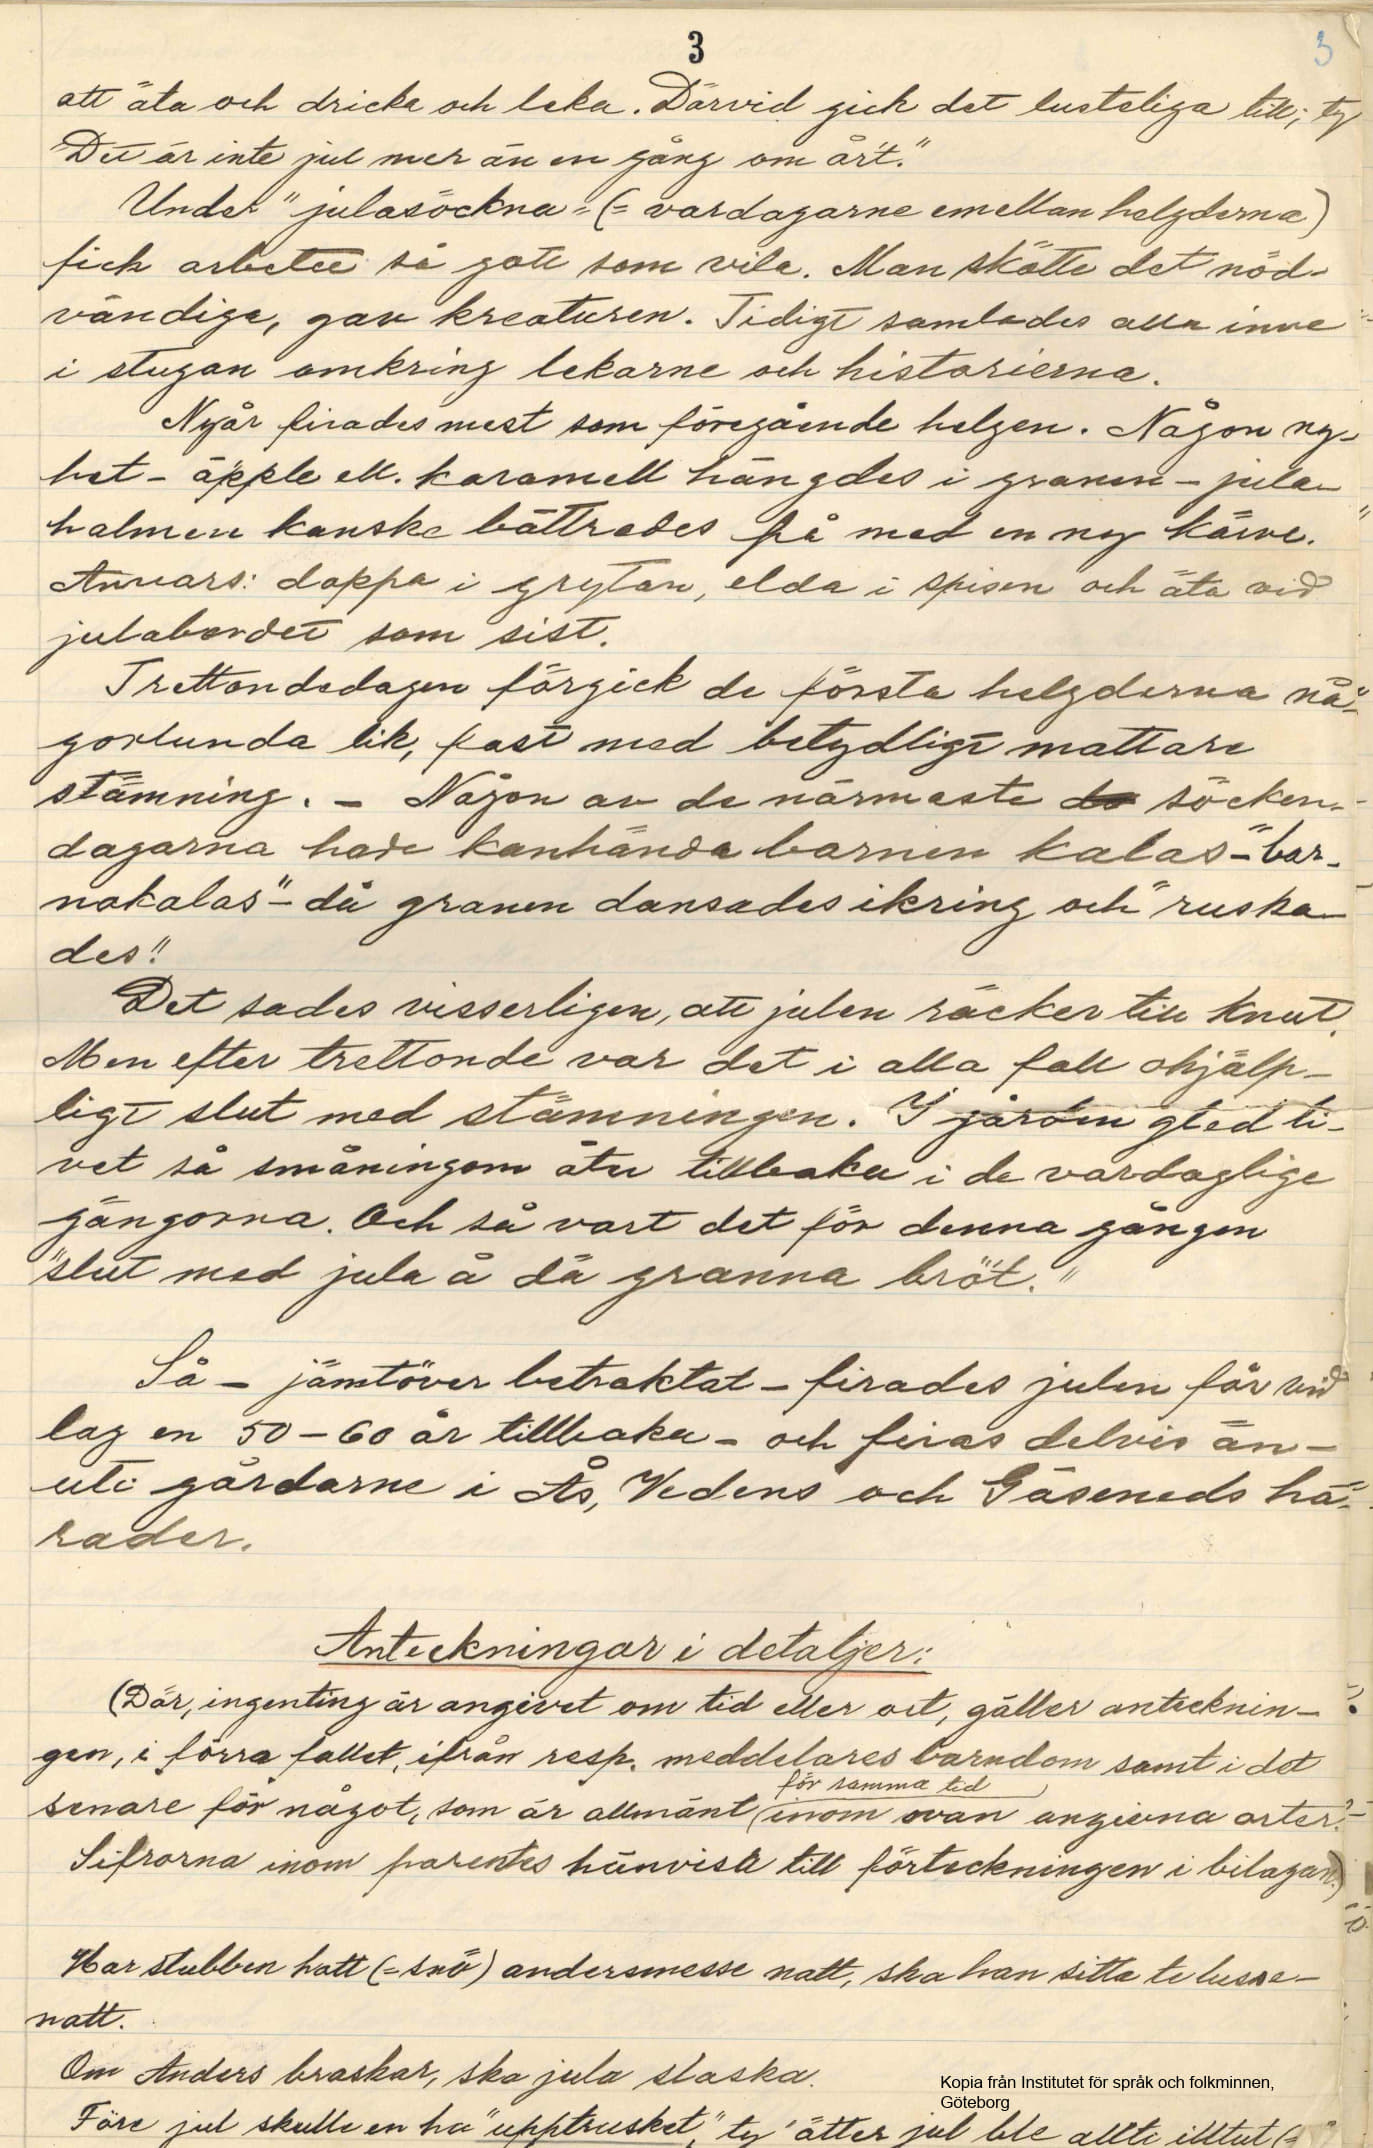 3
3
att äta och dricka och leka. Därvid gick det lusteliga till; ty
"Det är inte jul mer än en gång om år't."
Under "julasöckna" (= vardagarne emellan helgderna)
fick arbetet så gott som vila. Man skötte det nöd-
vändiga, gav kreaturen. Tidigt samlades alla inne
i stugan omkring lekarne och historierna.
Nyår firades mest som föregående helgen. Någon ny-
het - äpple ell. karamell hängdes i granen - jula-
halmen kanske bättrades på med en ny kärve.
Annars: doppa i grytan, elda i spisen och äta vid
julabordet som sist.
Trettondedagen förgick de första helgderna nå-
gorlunda lik, fast med betydligt mattare
stämning. - Någon av de närmaste söcken-
dagarna hade kanhända barnen kalas - "bar-
nakalas" - då granen dansades ikring och "ruska-
des".
Det sades visserligen, att julen räcker till Knut.
Men efter trettonde var det i alla fall ohjälp-
ligt slut med stämningen. I gården gled li-
vet så småningom åter tillbaka i de vardaglige
gängorna. Och så vart det för denna gången
"slut med jula å dä granna bröt."
Så - jämtöver betraktat - firades julen för vid
lag en 50-60 år tillbaka - och firas delvis än -
uti gårdarne i Ås, Vedens och Gäseneds hä-
rader.
Anteckningar i detaljer:
(Där, ingenting är angivet om tid eller ort, gäller antecknin-
gen, i förra fallet, ifrån resp. meddelares barndom samt i det
för samma tid
senare för något, som är allmänt inom ovan angivna orter.
Sifrorna inom parentes hänvisa till förteckningen i bilagan.)
Har stubben hatt (= snö) andersmesse natt, ska han sitta te lusse-
natt.
Om Anders braskar, ska jula slaska.
Före jul skulle en ha "upptrusket", ty 'ätter jul ble allt illtut (=
Kopia från Institutet för språk och folkminnen,
Göteborg